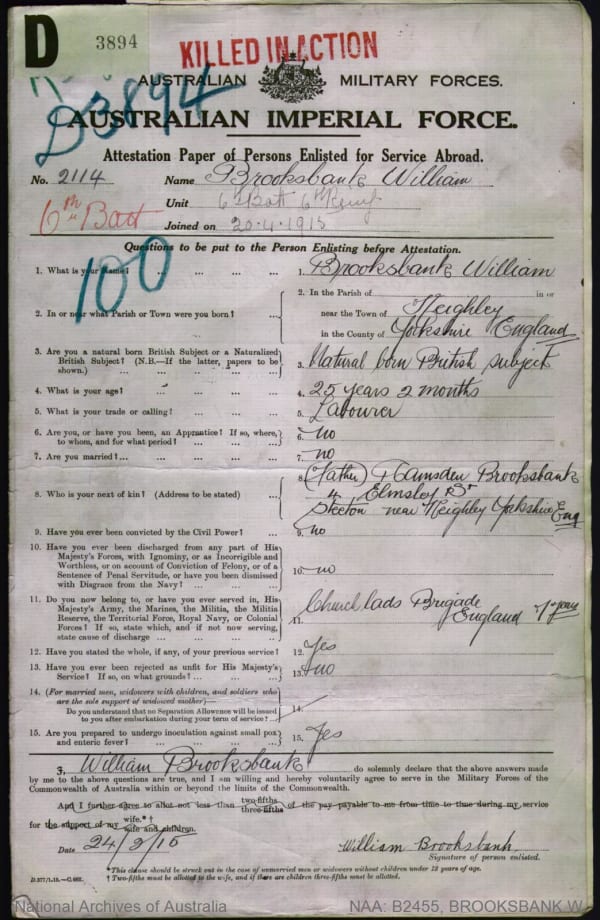 D 3894
KILLED IN ACTION
D3894
AUSTRALIAN MILITARY FORCES.
AUSTRALIAN IMPERIAL FORCE.
Attestation Paper of Persons Enlisted for Service Abroad.
No. 2114 Name Brooksbank William
6th Batt
Unit 6 Batt 6th
Joined on 20.4.1915
Questions to be put to the Person Enlisting before Attestation.
100
1. What is your Name? ... ... ... ... 1. Brooksbank William
2. In or near what Parish or Town were you born? ... 2. In the Parish of in or
near the Town of Keighley
in the County of Yorkshire England
3. Are you a natural born British Subject or a Naturalized
British Subject? (N.B.—If the latter, papers to be
shown.) ... ... ... ... ... 3. Natural born British subject
4. What is your age? ... ... ... ... 4. 25 years 2 months
5. What is your trade or calling? ... ... ... 5. Labourer
6. Are you, or have you been, an Apprentice? If so, where,
to whom, and for what period? ... ... ... 6. no
7. Are you married?... ... ... ... ... 7. no
8. Who is your next of kin? (Address to be stated) ... 8. (Father) Ramsden Brooksbank
4 Elmsley St
Steeton near Keighley Yorkshire Eng
9. Have you ever been convicted by the Civil Power? ... 9. no
10. Have you ever been discharged from any part of His
Majesty's Forces, with Ignominy, or as Incorrigible and
Worthless, or on account of Conviction of Felony, or of a
Sentence of Penal Servitude, or have you been dismissed
with Disgrace from the Navy? ... ... ... 10. no
11. Do you now belong to, or have you ever served in, His
Majesty's Army, the Marines, the Militia, the Militia
Reserve, the Territorial Force, Royal Navy, or Colonial
Forces? If so, state which, and if not now serving,
state cause of discharge ... ... ... ... 11. Church lads Brigade
England 7 years
12. Have you stated the whole, if any, of your previous service? 12. Yes
13. Have you ever been rejected as unfit for His Majesty's
Service? If so, on what grounds? ... ... ... 13. no
14. (For married men, widowers with children, and soldiers who
are the sole support of widowed mother)—
Do you understand that no Separation Allowance will be issued
to you after embarkation during your term of service?... 14.
15. Are you prepared to undergo inoculation against small pox
and enteric fever? ... ... ... ... 15. Yes
I, William Brooksbank do solemnly declare that the above answers made
by me to the above questions are true, and I am willing and hereby voluntarily agree to serve in the Military Forces of the
Commonwealth of Australia within or beyond the limits of the Commonwealth.
And I further agree to allot not less than two-fifths three-fifths of the pay payable to me from time to time during my service
for the support of my wife.*† wife and children.
Date 24/2/15 William Brooksbank
Signature of person enlisted.
*This clause should be struck out in the case of unmarried men or widowers without children under 18 years of age.
† Two-fifths must be allotted to the wife, and if there are children three-fifths must be allotted.
National Archives of Australia NAA: B2455, BROOKSBANK W